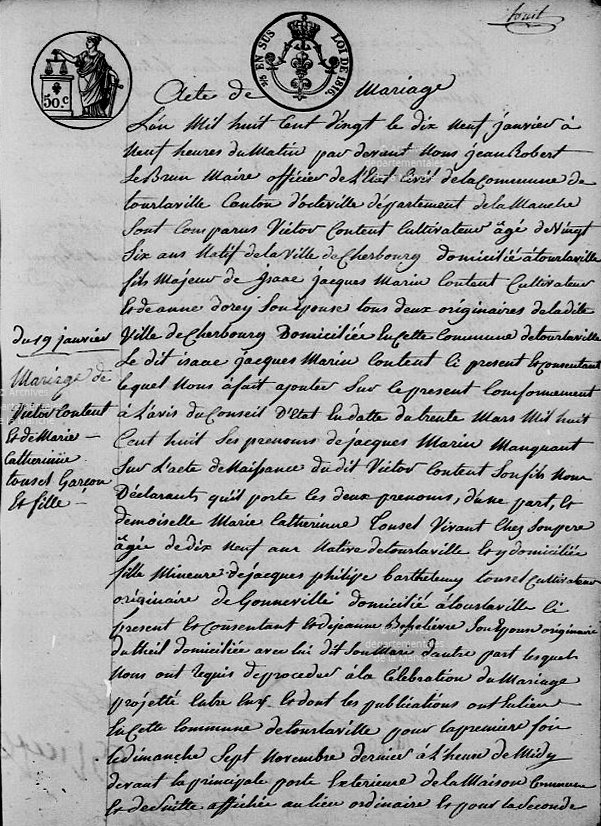 huit
50c
EN SUS
LOI DE 1816
Acte de Mariage
L'an Mil huit Cent Vingt le dix Neuf janvier à
Neuf heures du Matin par devant Nous jean Robert
Le Brun Maire officier de L'Etat Civil de la Commune de
tourlaville Canton d'octeville département de la Manche
Sont Comparus Victor Content Cultivateur âgé de Vingt
Six ans Natif de la Ville de Cherbourg domicilié à tourlaville
fils Majeur de Isaac jacques Marin Content Cultivateur
Et de anne dorey Son Epouse tous deux originaires de la dite
Ville de Cherbourg Domiciliée En Cette Commune de tourlaville
Le dit isaac jacques Marin Content Ci présent Et Consentant
lequel Nous à fait ajouter Sur le present Conformement
à L'avis du Conseil D'Etat En datte du trente Mars Mil huit
Cent huit Ses prenoms de jacques Marin Manquant
Sur L'acte de Naissance du dit Victor Content Son fils Nous
Déclarant qu'il porte les deux prenoms, d'une part, Et
demoiselle Marie Catherinne Touset Vivant Chez Son pere
âgée de dix Neuf ans Native de tourlaville Et y domiciliée
fille Mineure de jacques philipe Barthelemy touset Cultivateur
originaire de Gonneville domicilié à tourlaville Ci
present Et Consentant Et de jeanne Son Epouse originaire
du theil domiciliée avec lui dit Son Mari d'autre part lesquels
Nous ont Requis de proceder à la Célébration du Mariage
projetté Entre Eux Et dont les publications ont Eu lieu
En Cette Commune de tourlaville pour la premiere fois
le dimanche Sept Novembre dernier à L'heure de Midy
devant la principale porte Exterieure de la Maison Commune
Et de Suitte affichée au lieu ordinaire Et pour la Seconde
du 19 janvier
Mariage de
Victor Content
Et de Marie
Catherinne
touset Garçon
Et fille
Archives
départementales
de la Manche